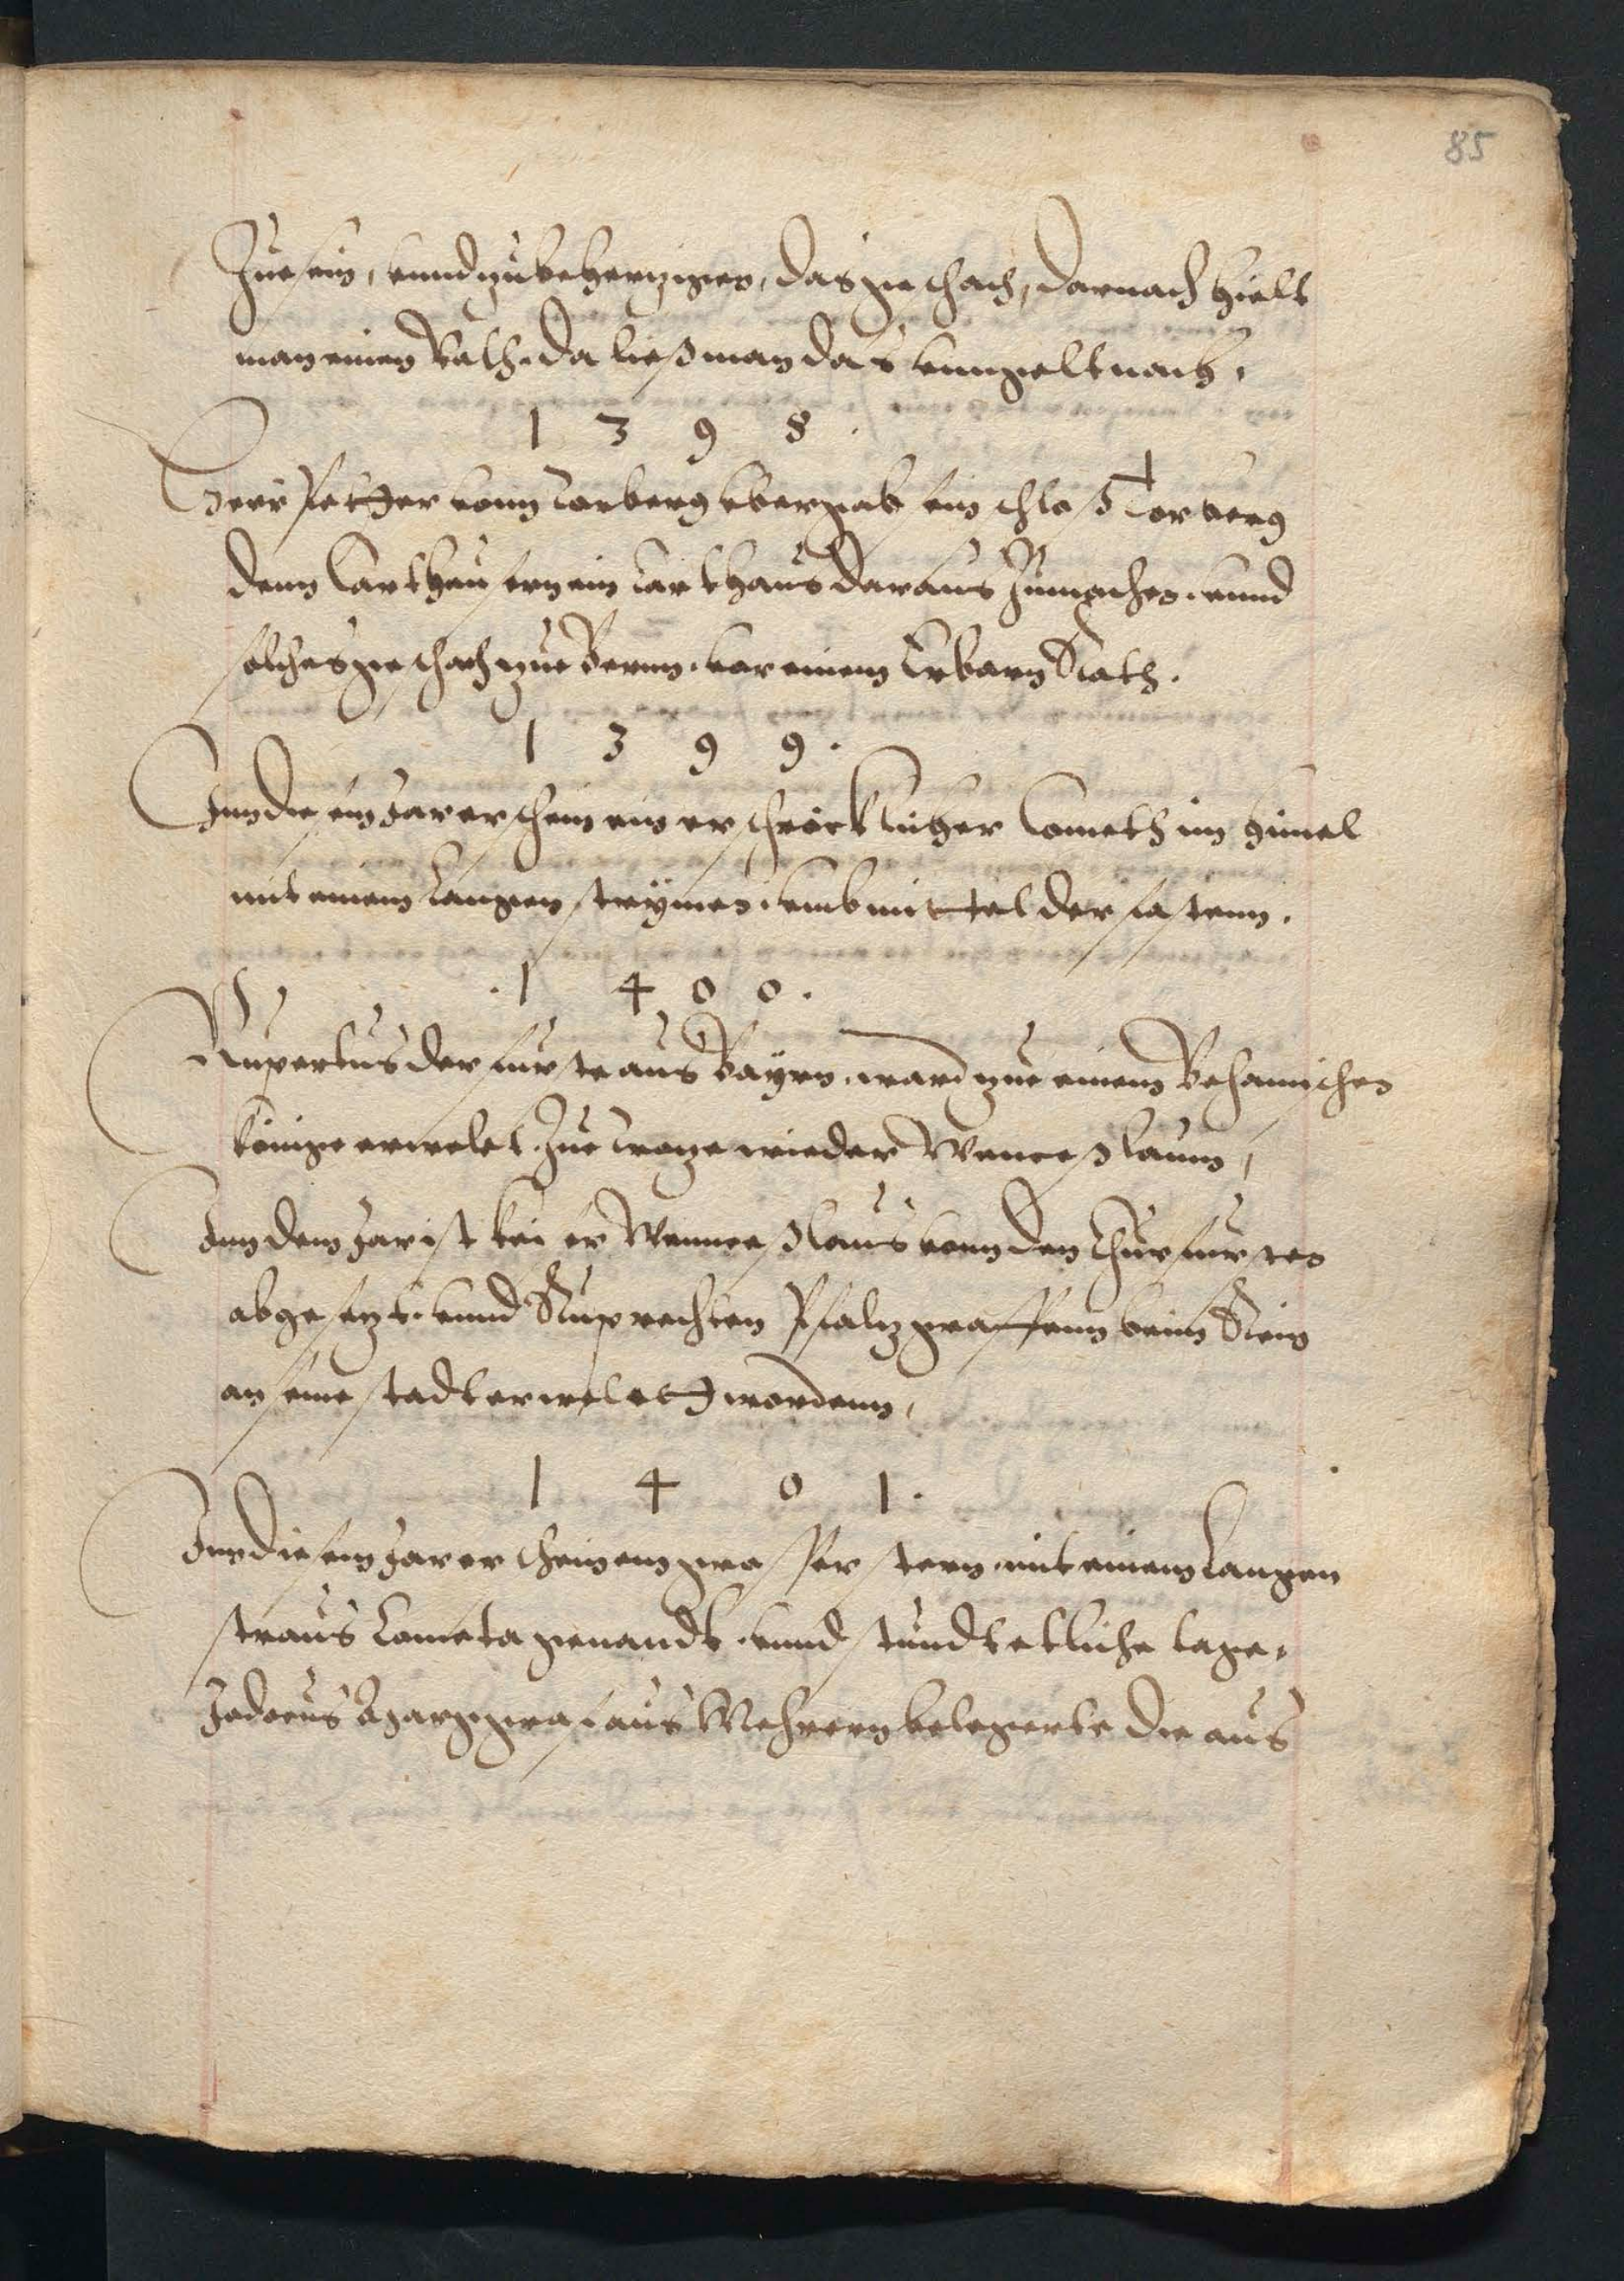 85
Zue sein, vnnd zubehertzigen, das geschach, darnach hielt
man einen Rath. da ließ man das vmgelt nach.
1 3 9 8.
Herr Petter vonn Torberg vbergab sein schloß Torberg
denn Carthausern ein Carthaus daraus zumachen. vnnd
solches geschach zue Bernn. vor einem Erbarn Rath.
1 3 9 9.
Inn diesem Jar erschein ein erschröcklicher Cometh im himel
mit einem Langen streymen. vmb mittel der fastenn.
1 4 0 0.
Rupertus der furste aus Bayrn. ward zue einem Behamischen
könige erwelet. Zue troze wieder Wenceßlaum,
Inn dem Jar ist keiser Wenneeßlaus vonn den Churfursten
abgesezt. vnnd Ruprechten Pfalzgraffenn beim Rein
an seine stadt erwelett wordenn,
1 4 0 1.
Inn diesem Jar erschein ein grosser stern. mit einem Langen
straus Cometa genandt. vnnd stundt etliche tage.
Jodocus Marggraf aus Mehrern belegerte die aus